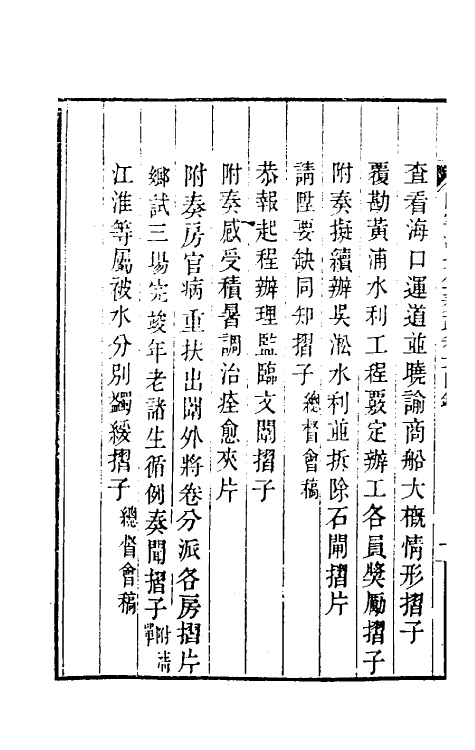 查看海口運道並曉諭商船大概情形摺子
覆勘黃浦水利工程覈定辦工各員獎勵摺子
附奏擬續辦吳淞水利並拆除石閘摺片
請陞要缺同知摺子 總督會稿
恭報起程辦理監臨文闈摺子
附奏感受積暑調治痊愈夾片
附奏房官病重扶出闈外將卷分派各房摺片
鄉試三場完竣年老諸生循例奏聞摺子 附清單
江淮等屬被水分別蠲緩摺子 總督會稿